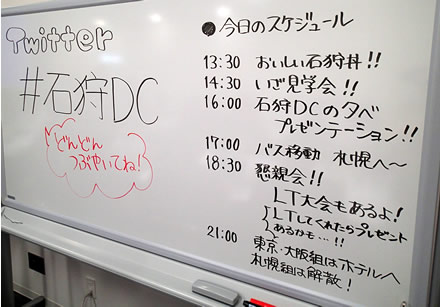 Twitter
#石狩DC
どんどん
つぶやいてね!
●今日のスケジュール
13:30 おいしい石狩丼!!
14:30 いざ見学会!!
16:00 石狩DCの夕べ
プレゼンテーション!!
17:00 バス移動 札幌へ〜
18:30 懇親会!!
LT大会もあるよ!
LTしてくれたらプレゼント
あるかも…!!
21:00 東京・大阪組はホテルへ
札幌組は解散!